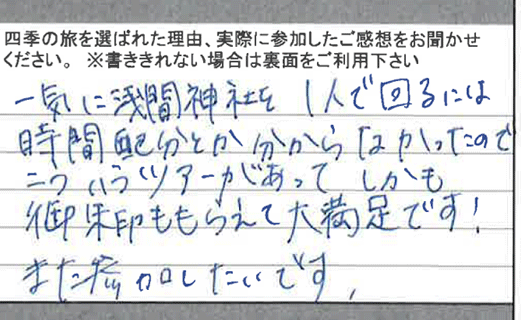 四季の旅を選ばれた理由、実際に参加したご感想をお聞かせ
ください。 ※書ききれない場合は裏面をご利用下さい
一気に浅間神社を1人で回るには
時間配分とか分からなかったので
こういうツアーがあって しかも
御朱印ももらえて大満足です!
また参加したいです。